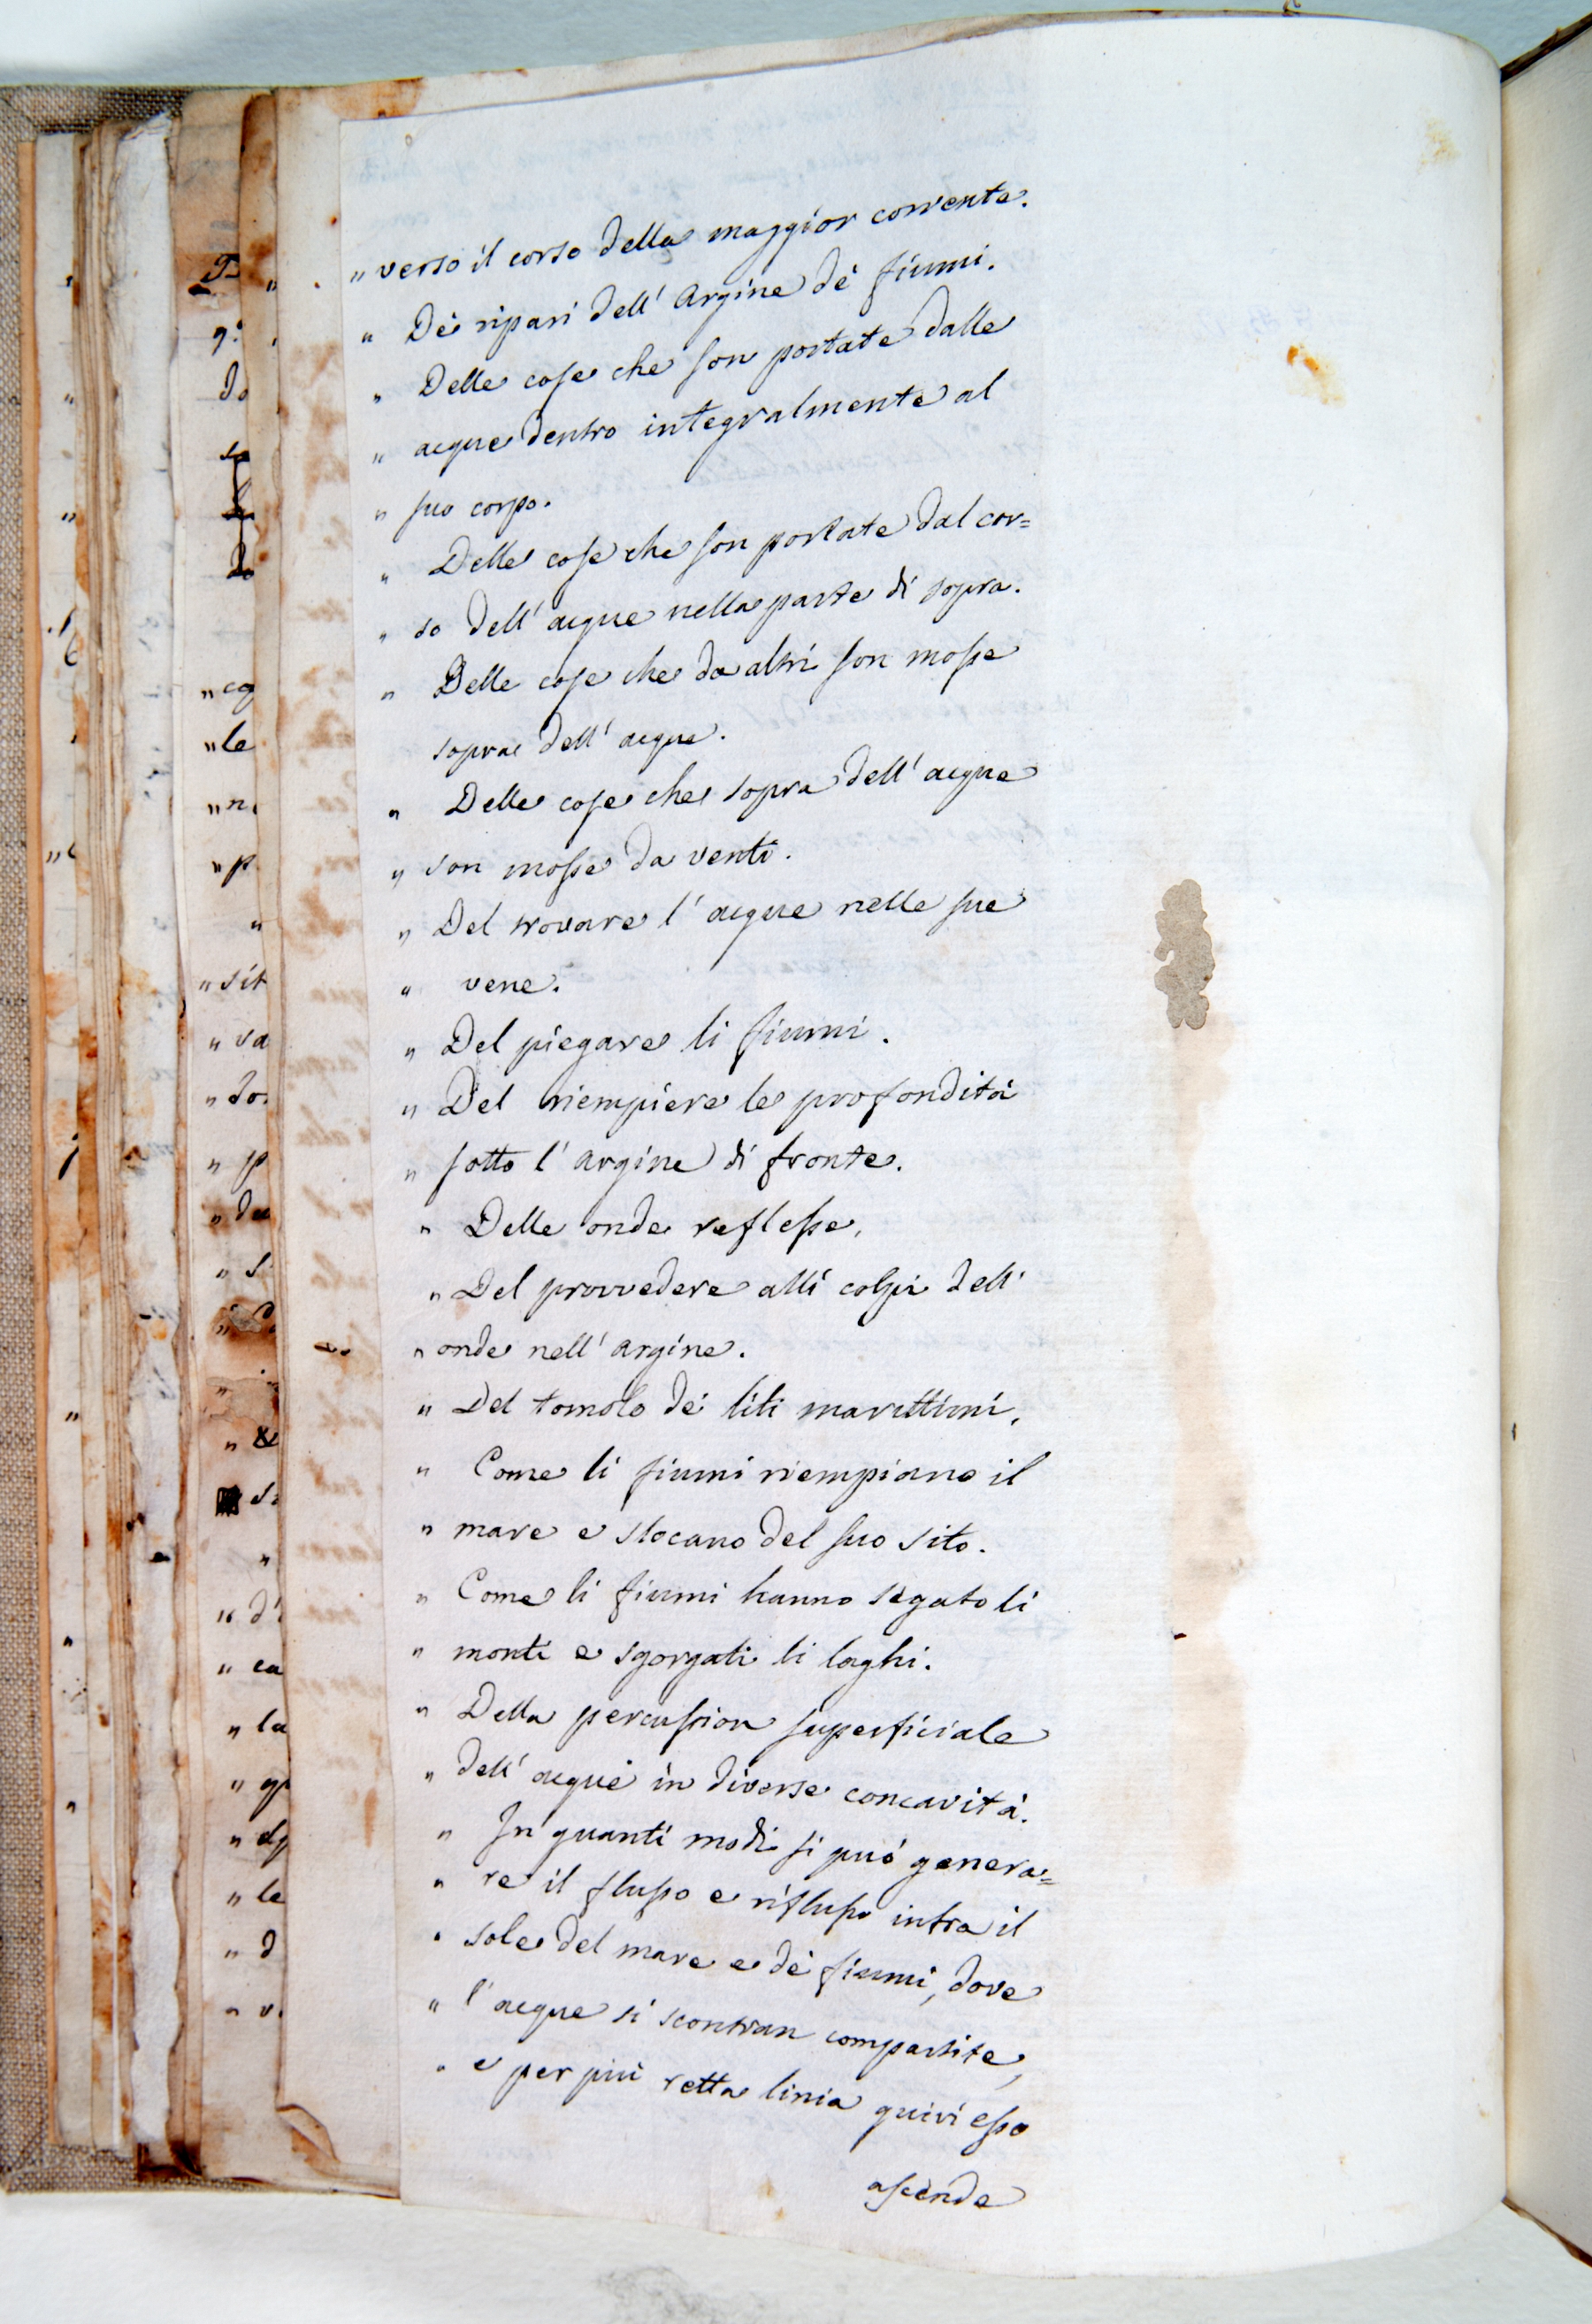 „ verso il corso della maggior corrente.
„ De' ripari dell' Argine de' fiumi.
„ Delle cose che son portate dalle
„ acque dentro integralmente al
„ suo corpo.
„ Delle cose che son portate dal cor=
„ so dell' acque nella parte di sopra.
„ Delle cose che da altri son mosse
sopra dell' acque.
„ Delle cose che sopra dell' acque
„ son mosse da venti.
„ Del trovare l' acque nelle sue
„ vene.
„ Del piegare li fiumi.
„ Del riempiere le profondità
„ sotto l' argine di fronte.
„ Delle onde reflesse.
„ Del provvedere alli colpi dell'
„ onde nell' argine.
„ Del tomolo de' liti marittimi.
„ Come li fiumi riempiano il
„ mare e slocano del suo sito.
„ Come li fiumi hanno segato li
„ monti e sgorgati li laghi.
„ Della percussion superficiale
„ dell' acque in diverse concavità.
„ In quanti modi si può genera=
„ re il flusso e riflusso intra il
„ sole del mare e de' fiumi, dove
„ l' acque si scontran compartite,
„ e per più retta linia quivi esso
ascende